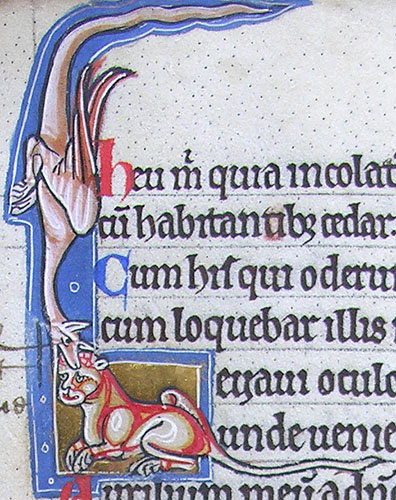 heu m̃ quia incolat
cũ habitantibꝫ cedar.
Cum his qui oderun
cum loquebar illis
Levaui oculo
unde uenie
Auxilium meũ a dn̄